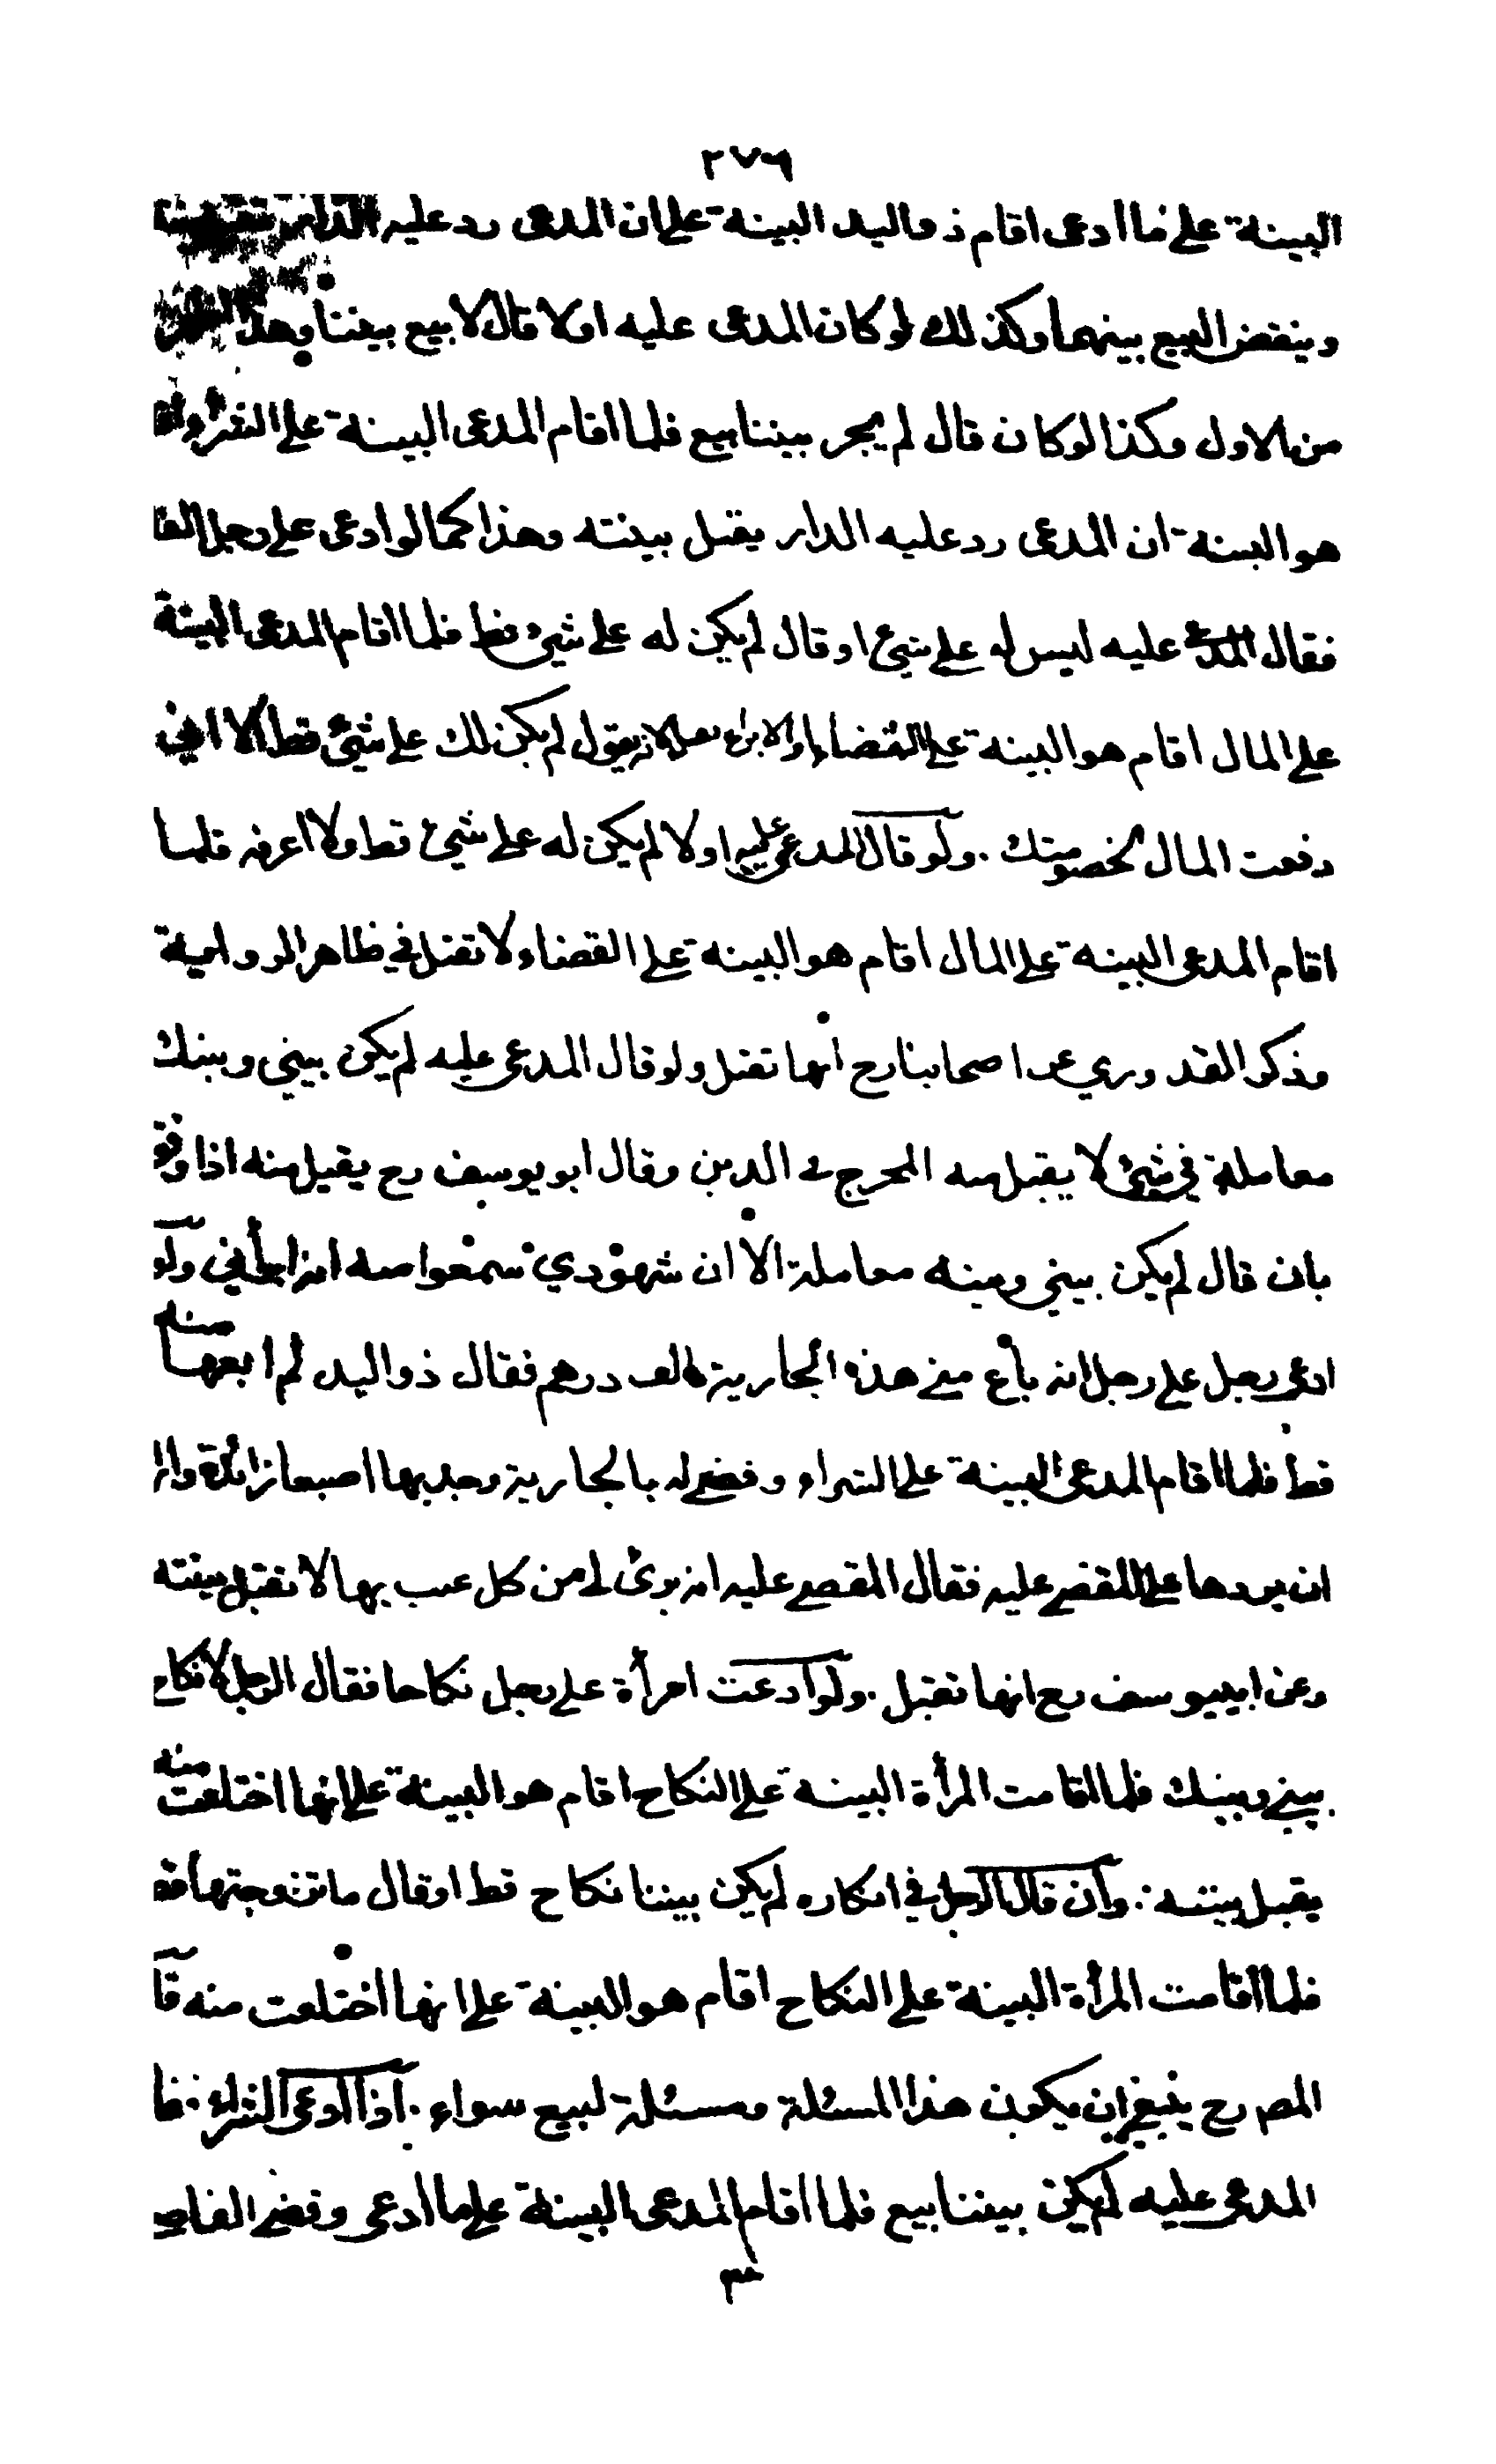 ٢٧٦
البينة على ما ادعى اقام ذو اليد البينة على ان المدعى رد عليه الدار
وينقض البيع بينهما وكذلك لو كان المدعى عليه اولا قال لا بيع بيننا وهذا
من الاول وكذا لو كان قال لم يجر بيننا بيع فلما اقام المدعى البينة على الشراء
هو البينة ان المدعى رد عليه الدار يقبل بينته وهذا كما لو ادعى على رجل الفا
فقال المدعى عليه ليس له على شيئ او قال لم يكن له على شيئ قط فلما اقام المدعى البينة
على المال اقام هو البينة على القضاء او الابراء يقبل لانه يقول لم يكن لك على شيئ قط الا انى
دفعت المال لخصومتك . ولو قال المدعى عليه اولا لم يكن له على شيئ قط ولا اعرفه فلما
اقام المدعى البينة على المال اقام هو البينة على القضاء لا تقبل في ظاهر الرواية
وذكر القدوري عن اصحابنا رح انها تقبل ولو قال المدعى عليه لم يكن بيني وبينك
معاملة في شيئ لا يقبل منه المخرج من الدين وقال ابو يوسف رح يقبل منه اذا وفق
بان قال لم يكن بيني وبينه معاملة الا ان شهودي سمعوا منه انه ابرأني ولو
ادعى رجل على رجل انه باع مني هذه الجارية بالف درهم فقال ذو اليد لم ابعها منه
قط فلما اقام المدعى البينة على الشراء وقضى له بالجارية وجد بها اصبعا زائدة واراد
ان يردها على المقضى عليه فقال المقضى عليه انه برئ لى من كل عيب بها لا تقبل بينته
وعن ابي يوسف رح انها تقبل . ولو ادعت امرأة على رجل نكاحا فقال الرجل لا نكاح
بيني وبينك فلما اقامت المرأة البينة على النكاح اقام هو البينة على انها اختلعت منه
يقبل بينته . وان قال الرجل في انكاره لم يكن بيننا نكاح قط او قال ما تزوجتها قط
فلما اقامت المرأة البينة على النكاح اقام هو البينة على انها اختلعت منه قا
المص رح ينبغي ان يكون هذا المسئلة ومسئلة لبيع سواء . اذا ادعى الشراء فقا
المدعى عليه لم يكن بيننا بيع فلما اقام المدعى البينة على ما ادعى وقضى القاضى